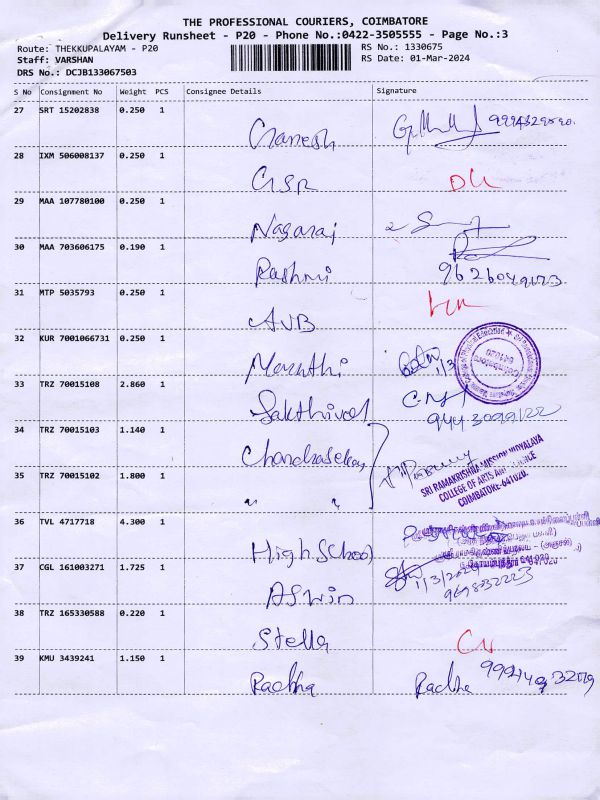 THE PROFESSIONAL COURIERS, COIMBATORE
Delivery Runsheet - P20 - Phone No.:0422-3505555 - Page No.:3
Route: THEKKUPALAYAM - P20
RS No.: 1330675
Staff: VARSHAN
RS Date: 01-Mar-2024
DRS No.: DCJB133067503
S No Consignment No Weight PCS Consignee Details Signature
27 SRT 15202838 0.250 1
Ganesh
28 IXM 506008137 0.250 1
GSR
29 MAA 107780100 0.250 1
Nagaraj
30 MAA 703606175 0.190 1
Rashmi
31 MTP 5035793 0.250 1
AVB
32 KUR 7001066731 0.250 1
Maruthi 1/3
33 TRZ 70015108 2.860 1
Sakthivel
34 TRZ 70015103 1.140 1
Chandrasekar
35 TRZ 70015102 1.800 1
" "
SRI RAMAKRISHNA MISSION VIDYALAYA
COLLEGE OF ARTS AND SCIENCE
COIMBATORE-641020.
36 TVL 4717718 4.300 1
High School
37 CGL 161003271 1.725 1
Aswin 1/3/2024
38 TRZ 165330588 0.220 1
Stella
39 KMU 3439241 1.150 1
Radha Radha